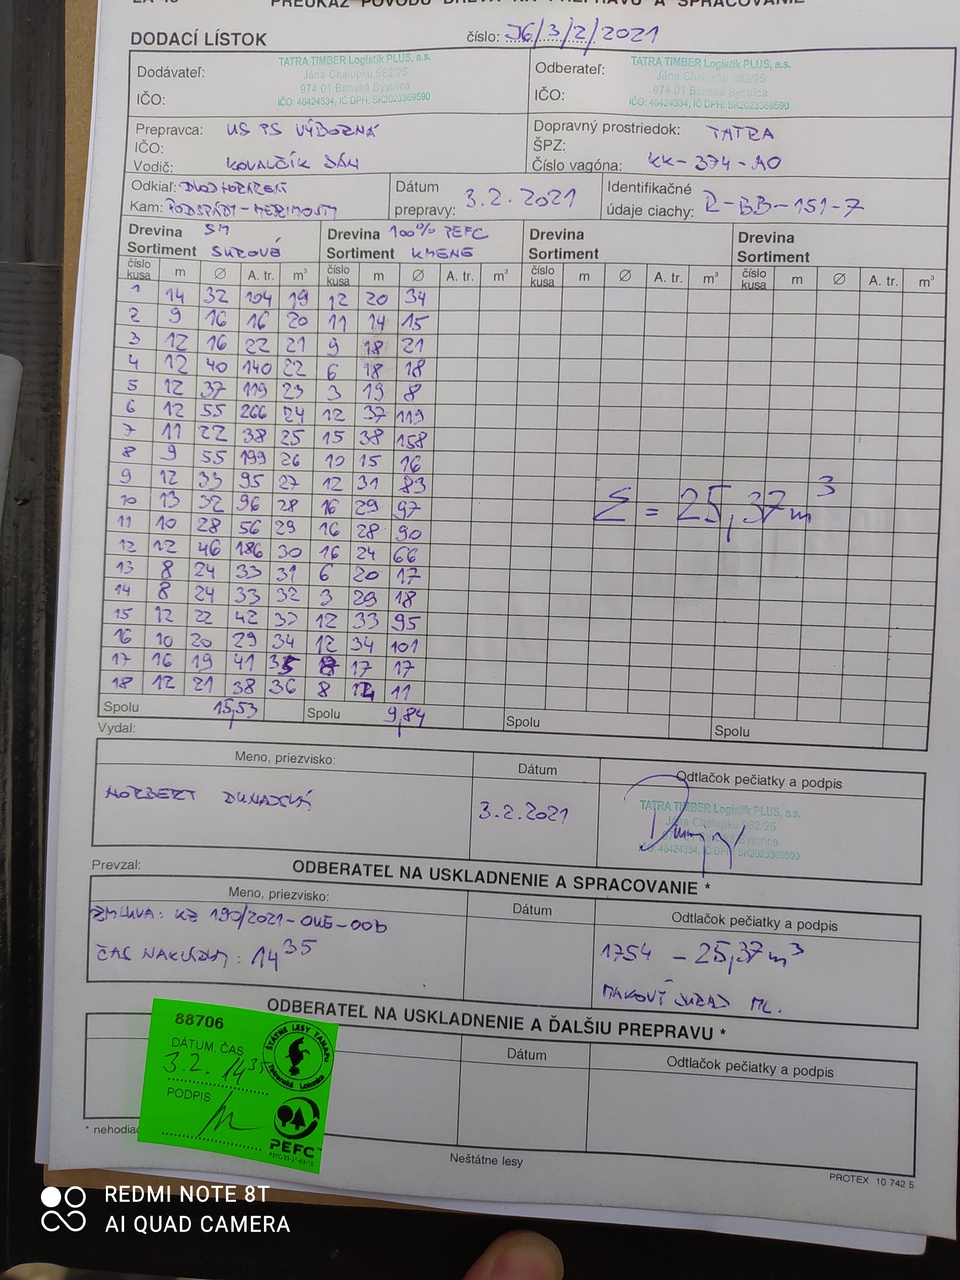 PREUKAZ PÔVODU DREVA NA PREPRAVU A SPRACOVANIE
DODACÍ LÍSTOK číslo: J6/3/2/2021
Dodávateľ: TATRA TIMBER Logistik PLUS, a.s.
Jána Chalupku 682/25
974 01 Banská Bystrica
IČO: IČO: 46424334, IČ DPH: SK2023369590
Odberateľ: TATRA TIMBER Logistik PLUS, a.s.
Jána Chalupku 682/25
974 01 Banská Bystrica
IČO: IČO: 46424334, IČ DPH: SK2023369590
Prepravca: US PS VÝBORNÁ
IČO:
Vodič: KOVALČÍK JÁN
Dopravný prostriedok: TATRA
ŠPZ:
Číslo vagóna: KK-374-AO
Odkiaľ:
Kam: PODSPÁDY-MEDZIMOSTY
Dátum
prepravy: 3.2.2021
Identifikačné
údaje ciachy: R-BB-151-7
Drevina SM Drevina 100% PEFC Drevina Drevina
Sortiment SUROVÉ Sortiment KMENE Sortiment Sortiment
číslo kusa m ∅ A. tr. m³ číslo kusa m ∅ A. tr. m³ číslo kusa m ∅ A. tr. m³ číslo kusa m ∅ A. tr. m³
1 14 32 104 19 12 20 34
2 9 16 16 20 11 14 15
3 12 16 22 21 9 18 21
4 12 40 140 22 6 18 18
5 12 37 119 23 3 19 8
6 12 55 266 24 12 37 119
7 11 22 38 25 15 38 158
8 9 55 199 26 10 15 16
9 12 33 95 27 12 31 83
10 13 32 96 28 16 29 97
11 10 28 56 29 16 28 90
12 12 46 186 30 16 24 66
13 8 24 33 31 6 20 17
14 8 24 33 32 3 29 18
15 12 22 42 33 12 33 95
16 10 20 29 34 12 34 101
17 16 19 41 35 8 17 17
18 12 21 38 36 8 14 11
Σ = 25,37 m³
Spolu 15,53 Spolu 9,84 Spolu Spolu
Vydal:
Meno, priezvisko: Dátum Odtlačok pečiatky a podpis
NORBERT 3.2.2021
TATRA TIMBER Logistik PLUS, a.s.
Jána Chalupku 682/25
974 01 Banská Bystrica
IČO: 46424334, IČ DPH: SK2023369590
Prevzal: ODBERATEĽ NA USKLADNENIE A SPRACOVANIE *
Meno, priezvisko: Dátum Odtlačok pečiatky a podpis
ZMLUVA: KZ 190/2021-OUE-OOb
ČAS NAKLÁDKY: 14 35
1754 - 25,37 m³
ML.
ODBERATEĽ NA USKLADNENIE A ĎALŠIU PREPRAVU *
Dátum Odtlačok pečiatky a podpis
88706
DÁTUM, ČAS
3.2. 14 35
PODPIS
ŠTÁTNE LESY TANAPU
Tatranská Lomnica
PEFC
* nehodia
Neštátne lesy
PROTEX 10 742 5
REDMI NOTE 8T
AI QUAD CAMERA